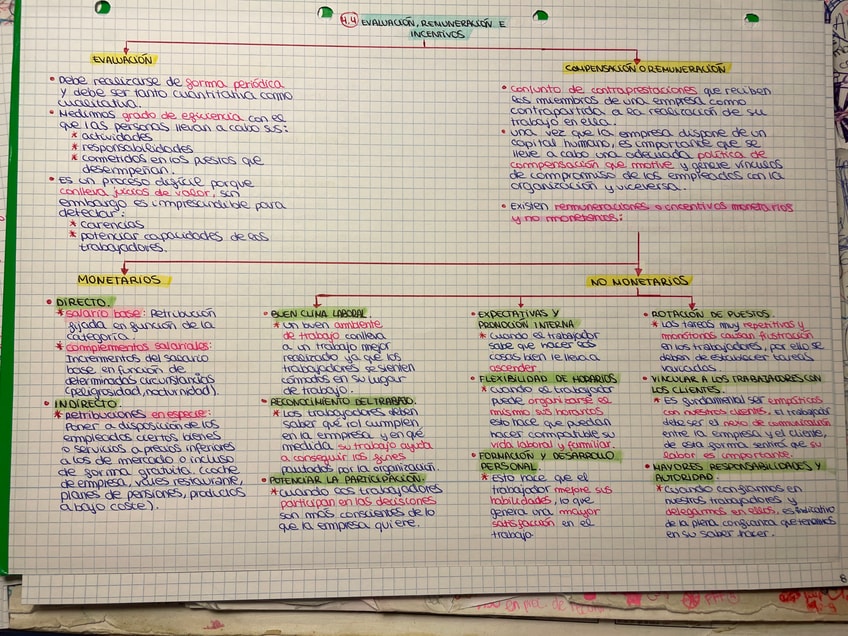 4.4 EVALUACIÓN, REMUNERACIÓN E
INCENTIVOS
EVALUACIÓN
• Debe realizarse de forma periódica
y debe ser tanto cuantitativa como
cualitativa.
• Medimos grado de eficiencia con el
que las personas llevan a cabo sus:
* actividades
* responsabilidades
* cometidos en los puestos que
desempeñan.
• Es un proceso difícil porque
conlleva juicios de valor, sin
embargo es imprescindible para
detectar:
* carencias
* potenciar capacidades de los
trabajadores.
COMPENSACIÓN O REMUNERACIÓN
• Conjunto de contraprestaciones que reciben
los miembros de una empresa como
contrapartida a la realización de su
trabajo en ella.
• Una vez que la empresa dispone de un
capital humano, es importante que se
lleve a cabo una adecuada política de
compensación que motive y genere vínculos
de compromiso de los empleados con la
organización y viceversa.
• Existen remuneraciones o incentivos monetarios
y no monetarios:
MONETARIOS
• DIRECTO.
* Salario base: Retribución
fijada en función de la
categoría.
* Complementos salariales:
Incrementos del salario
base en función de
determinadas circunstancias
(peligrosidad, nocturnidad).
• INDIRECTO.
* Retribuciones en especie:
Poner a disposición de los
empleados ciertos bienes
o servicios a precios inferiores
a los de mercado o incluso
de forma gratuita. (coche
de empresa, vales restaurante,
planes de pensiones, productos
a bajo coste).
NO MONETARIOS
• BUEN CLIMA LABORAL
* Un buen ambiente
de trabajo conlleva
a un trabajo mejor
realizado ya que los
trabajadores se sienten
cómodos en su lugar
de trabajo.
• RECONOCIMIENTO DEL TRABAJO.
* Los trabajadores deben
saber que (o) cumplen
en la empresa y en qué
medida su trabajo ayuda
a conseguir los fines
pautados por la organización.
• POTENCIAR LA PARTICIPACIÓN.
* Cuando los trabajadores
participan en las decisiones
son más conscientes de lo
que la empresa quiere.
• EXPECTATIVAS Y
PROMOCIÓN INTERNA
* Cuando el trabajador
sabe que hacer las
cosas bien le lleva a
ascender
• FLEXIBILIDAD DE HORARIOS
* Cuando el trabajador
puede organizarse él
mismo sus horarios
esto hace que puedan
hacer compatible su
vida laboral y familiar.
• FORMACIÓN Y DESARROLLO
PERSONAL.
* Esto hace que el
trabajador mejore sus
habilidades, lo que
genera una mayor
satisfacción en el
trabajo
• ROTACIÓN DE PUESTOS.
* Las tareas muy repetitivas y
monótonas causan frustración
en los trabajadores, por ello se
deben de establecer tareas
variadas.
• VINCULAR A LOS TRABAJADORES CON
LOS CLIENTES.
* Es fundamental ser empáticos
con nuestros clientes. El trabajador
debe ser el nexo de comunicación
entre la empresa y el cliente,
de esta forma sentirá que su
labor es importante.
• MAYORES RESPONSABILIDADES Y
AUTORIDAD.
* Cuando confiamos en
nuestros trabajadores y
delegamos en ellos, es indicativo
de la plena confianza que tenemos
en su saber hacer.
8